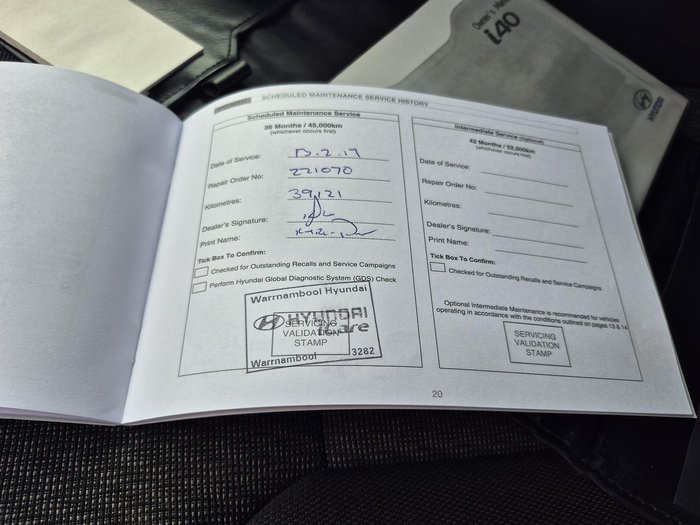 Owner's Manual
i40
HYUNDAI
SCHEDULED MAINTENANCE SERVICE HISTORY
Scheduled Maintenance Service
36 Months / 45,000km
(whichever occurs first)
Date of Service:
Repair Order No: 221070
Kilometres: 39,121
Dealer's Signature:
Print Name:
Tick Box To Confirm:
Checked for Outstanding Recalls and Service Campaigns
Perform Hyundai Global Diagnostic System (GDS) Check
Warrnambool Hyundai
HYUNDAI
iCare
SERVICING
VALIDATION
STAMP
Warrnambool 3282
Intermediate Service (Optional)
42 Months / 52,500km
(whichever occurs first)
Date of Service:
Repair Order No:
Kilometres:
Dealer's Signature:
Print Name:
Tick Box To Confirm:
Checked for Outstanding Recalls and Service Campaigns
Optional Intermediate Maintenance is recommended for vehicles
operating in accordance with the conditions outlined on pages 13 & 14
SERVICING
VALIDATION
STAMP
20